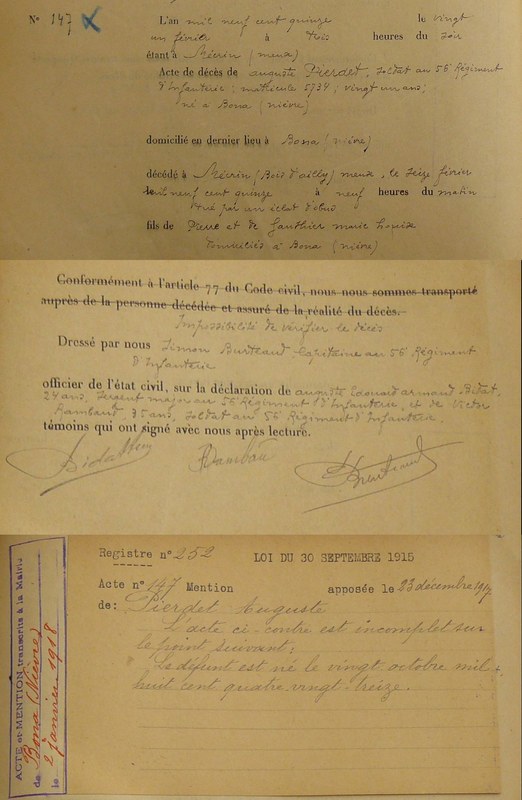 N° 147 L'an mil neuf cent quinze le vingt
un février à trois heures du soir
étant à Mécrin (meuse)
Acte de décès de auguste Pierdet, soldat au 56e Régiment
d'Infanterie ; matricule 5734 ; vingt un ans ;
né à Bona (nièvre)
domicilié en dernier lieu à Bona (nièvre)
décédé à Mécrin (Bois d'ailly) meuse, le seize février
mil neuf cent quinze à neuf heures du matin
tué par un éclat d'obus
fils de Pierre et de Gauthier marie Louise
domiciliés à Bona (nièvre)
Conformément à l'article 77 du Code civil, nous nous sommes transporté
auprès de la personne décédée et assuré de la réalité du décès.
Impossibilité de vérifier le décès
Dressé par nous Simon Burteaud Capitaine au 56e Régiment
d'Infanterie
officier de l'état civil, sur la déclaration de auguste Edouard armand Bidat,
24 ans, Sergent major au 56e Régiment d'Infanterie, et de Victor
Rambaud, 35 ans, soldat au 56e Régiment d'Infanterie,
témoins qui ont signé avec nous après lecture.
Registre n° 252 LOI DU 30 SEPTEMBRE 1915
Acte n° 147 Mention apposée le 23 décembre 1917
de: Pierdet Auguste
L'acte ci-contre est incomplet sur
le point suivant :
"Le défunt est né le vingt octobre mil
huit cent quatre vingt treize.
ACTE et MENTION transcrits à la Mairie
de Bona (Nièvre)
le 2 janvier 1918